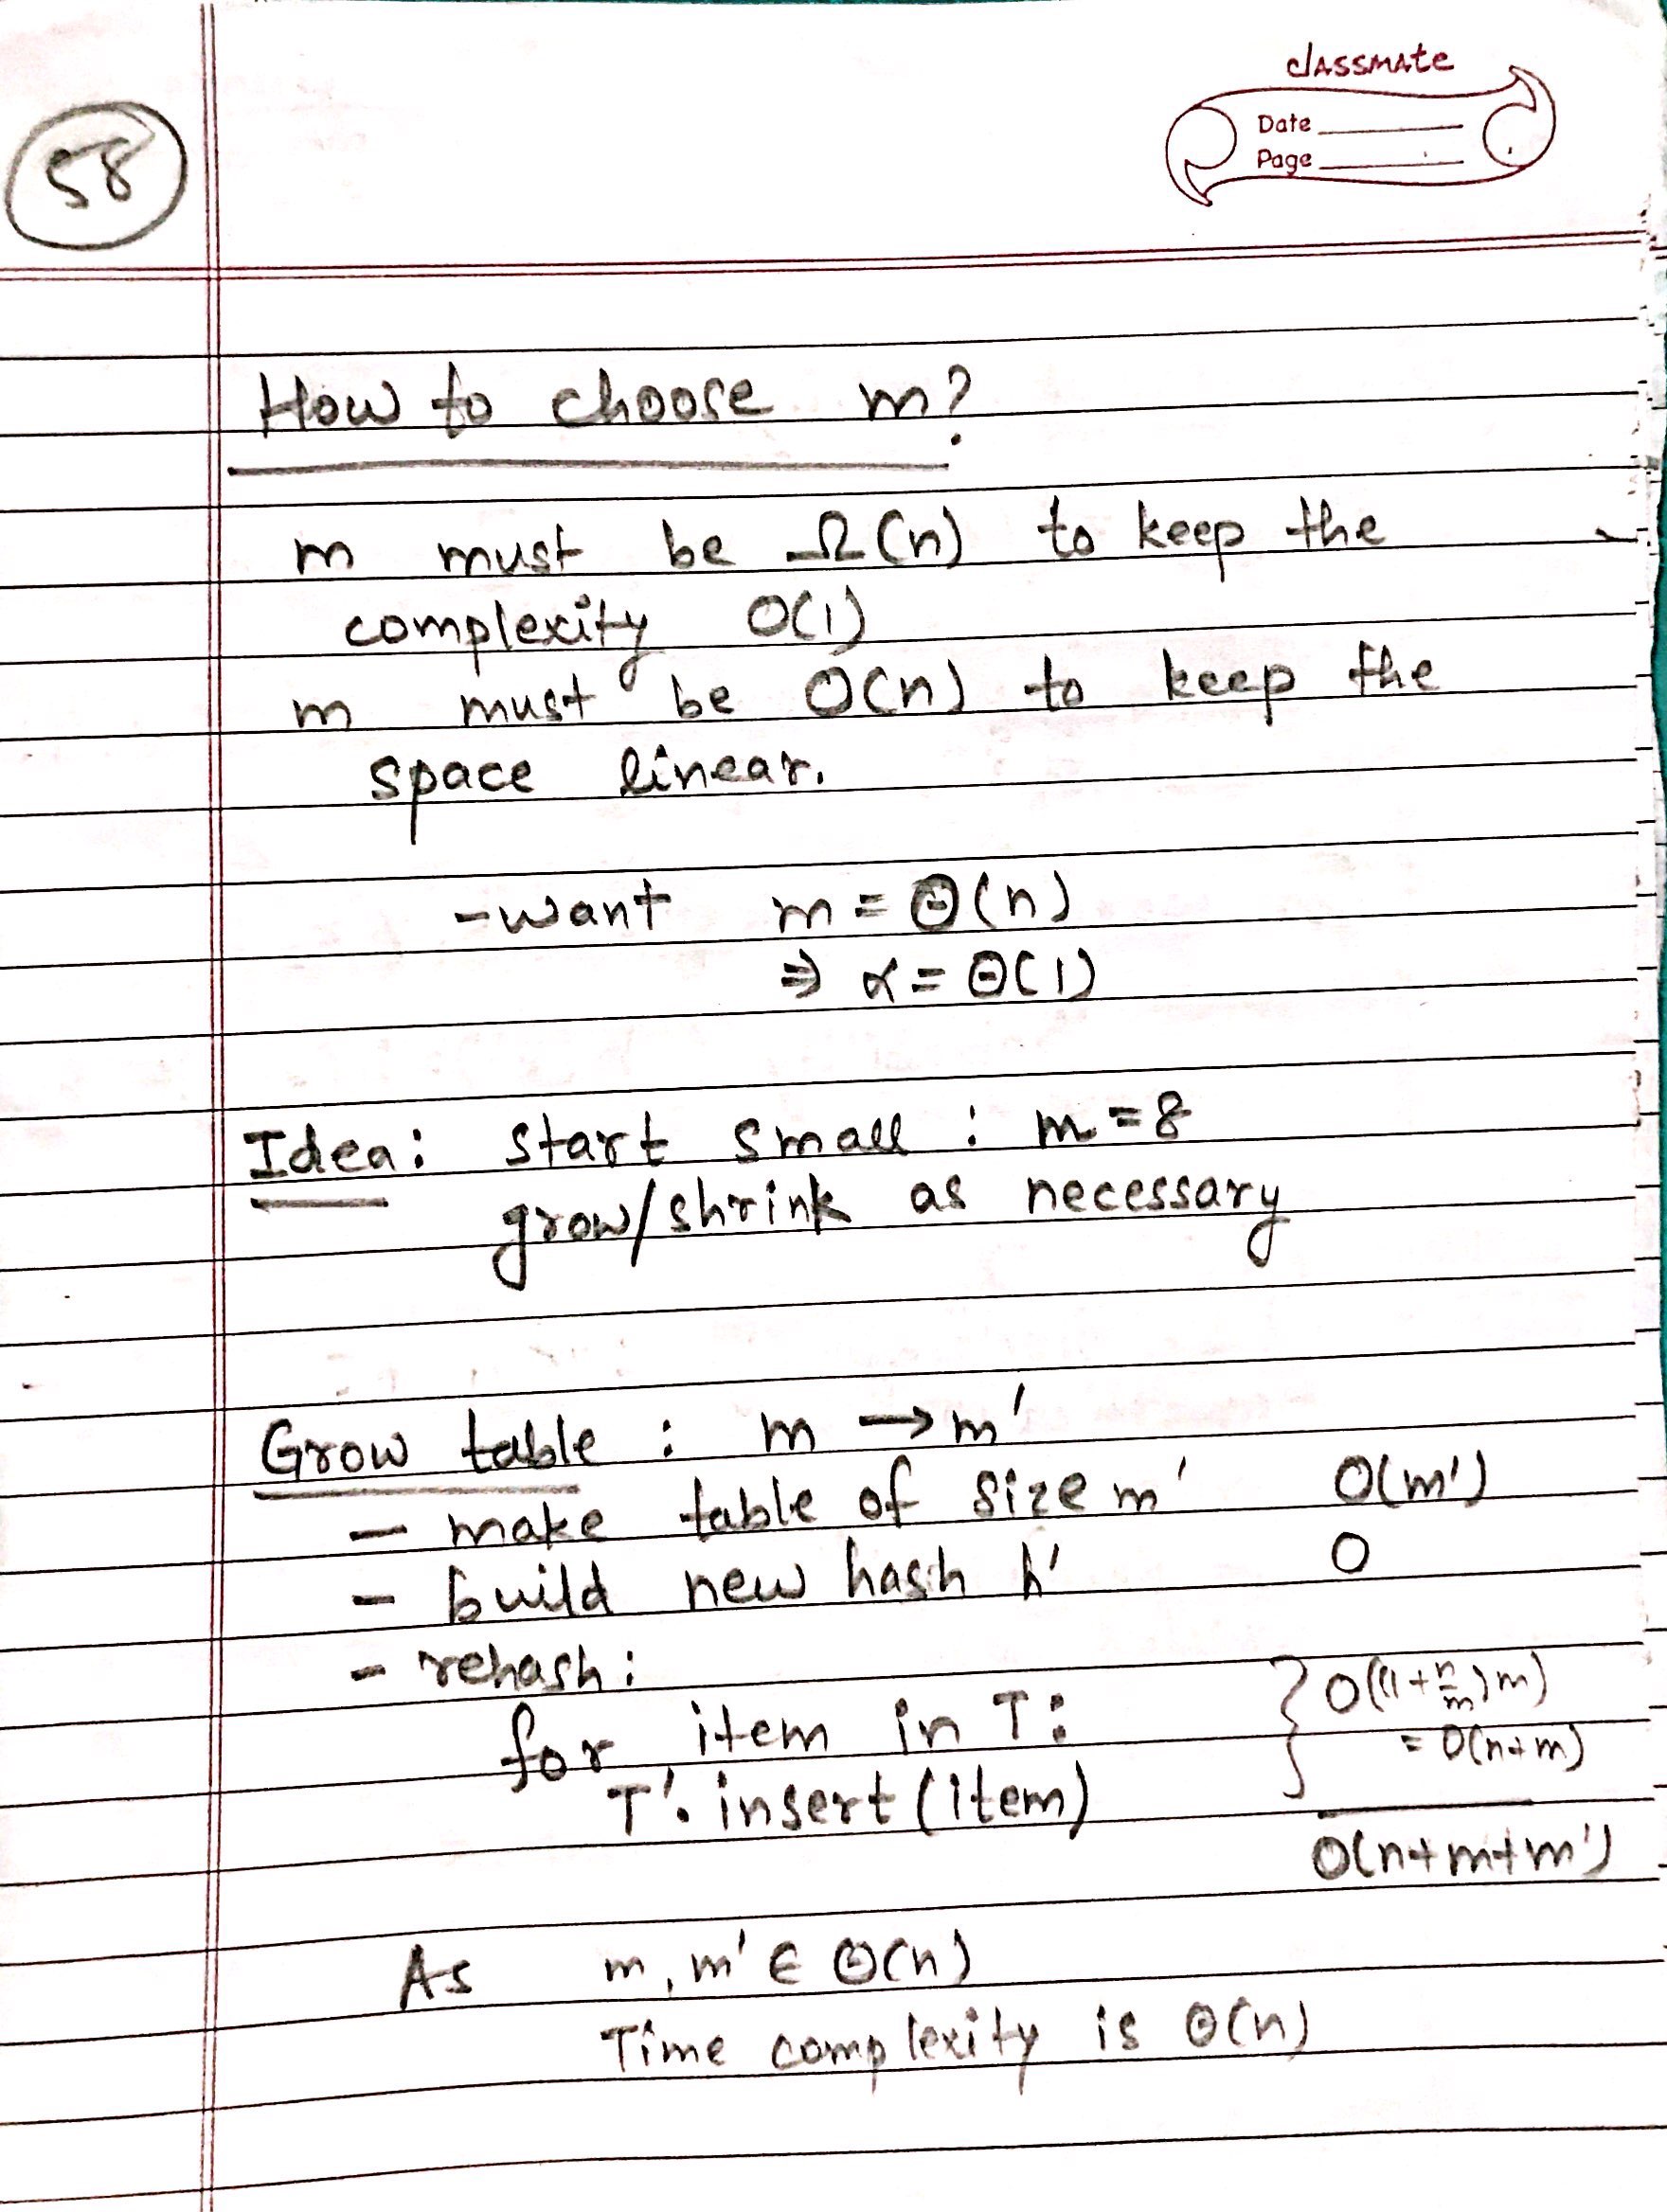 classmate
Date
Page
58
How to choose m?
m must be Ω(n) to keep the
complexity O(1)
m must be O(n) to keep the
space linear.
-want m = Θ(n)
⇒ α = Θ(1)
Idea: start small : m = 8
grow/shrink as necessary
Grow table : m → m'
- make table of size m' O(m')
- build new hash h' O
- rehash:
for item in T: } O((1+n/m)m)
= O(n+m)
T'. insert (item)
O(n+m+m')
As m, m' ∈ Θ(n)
Time complexity is Θ(n)